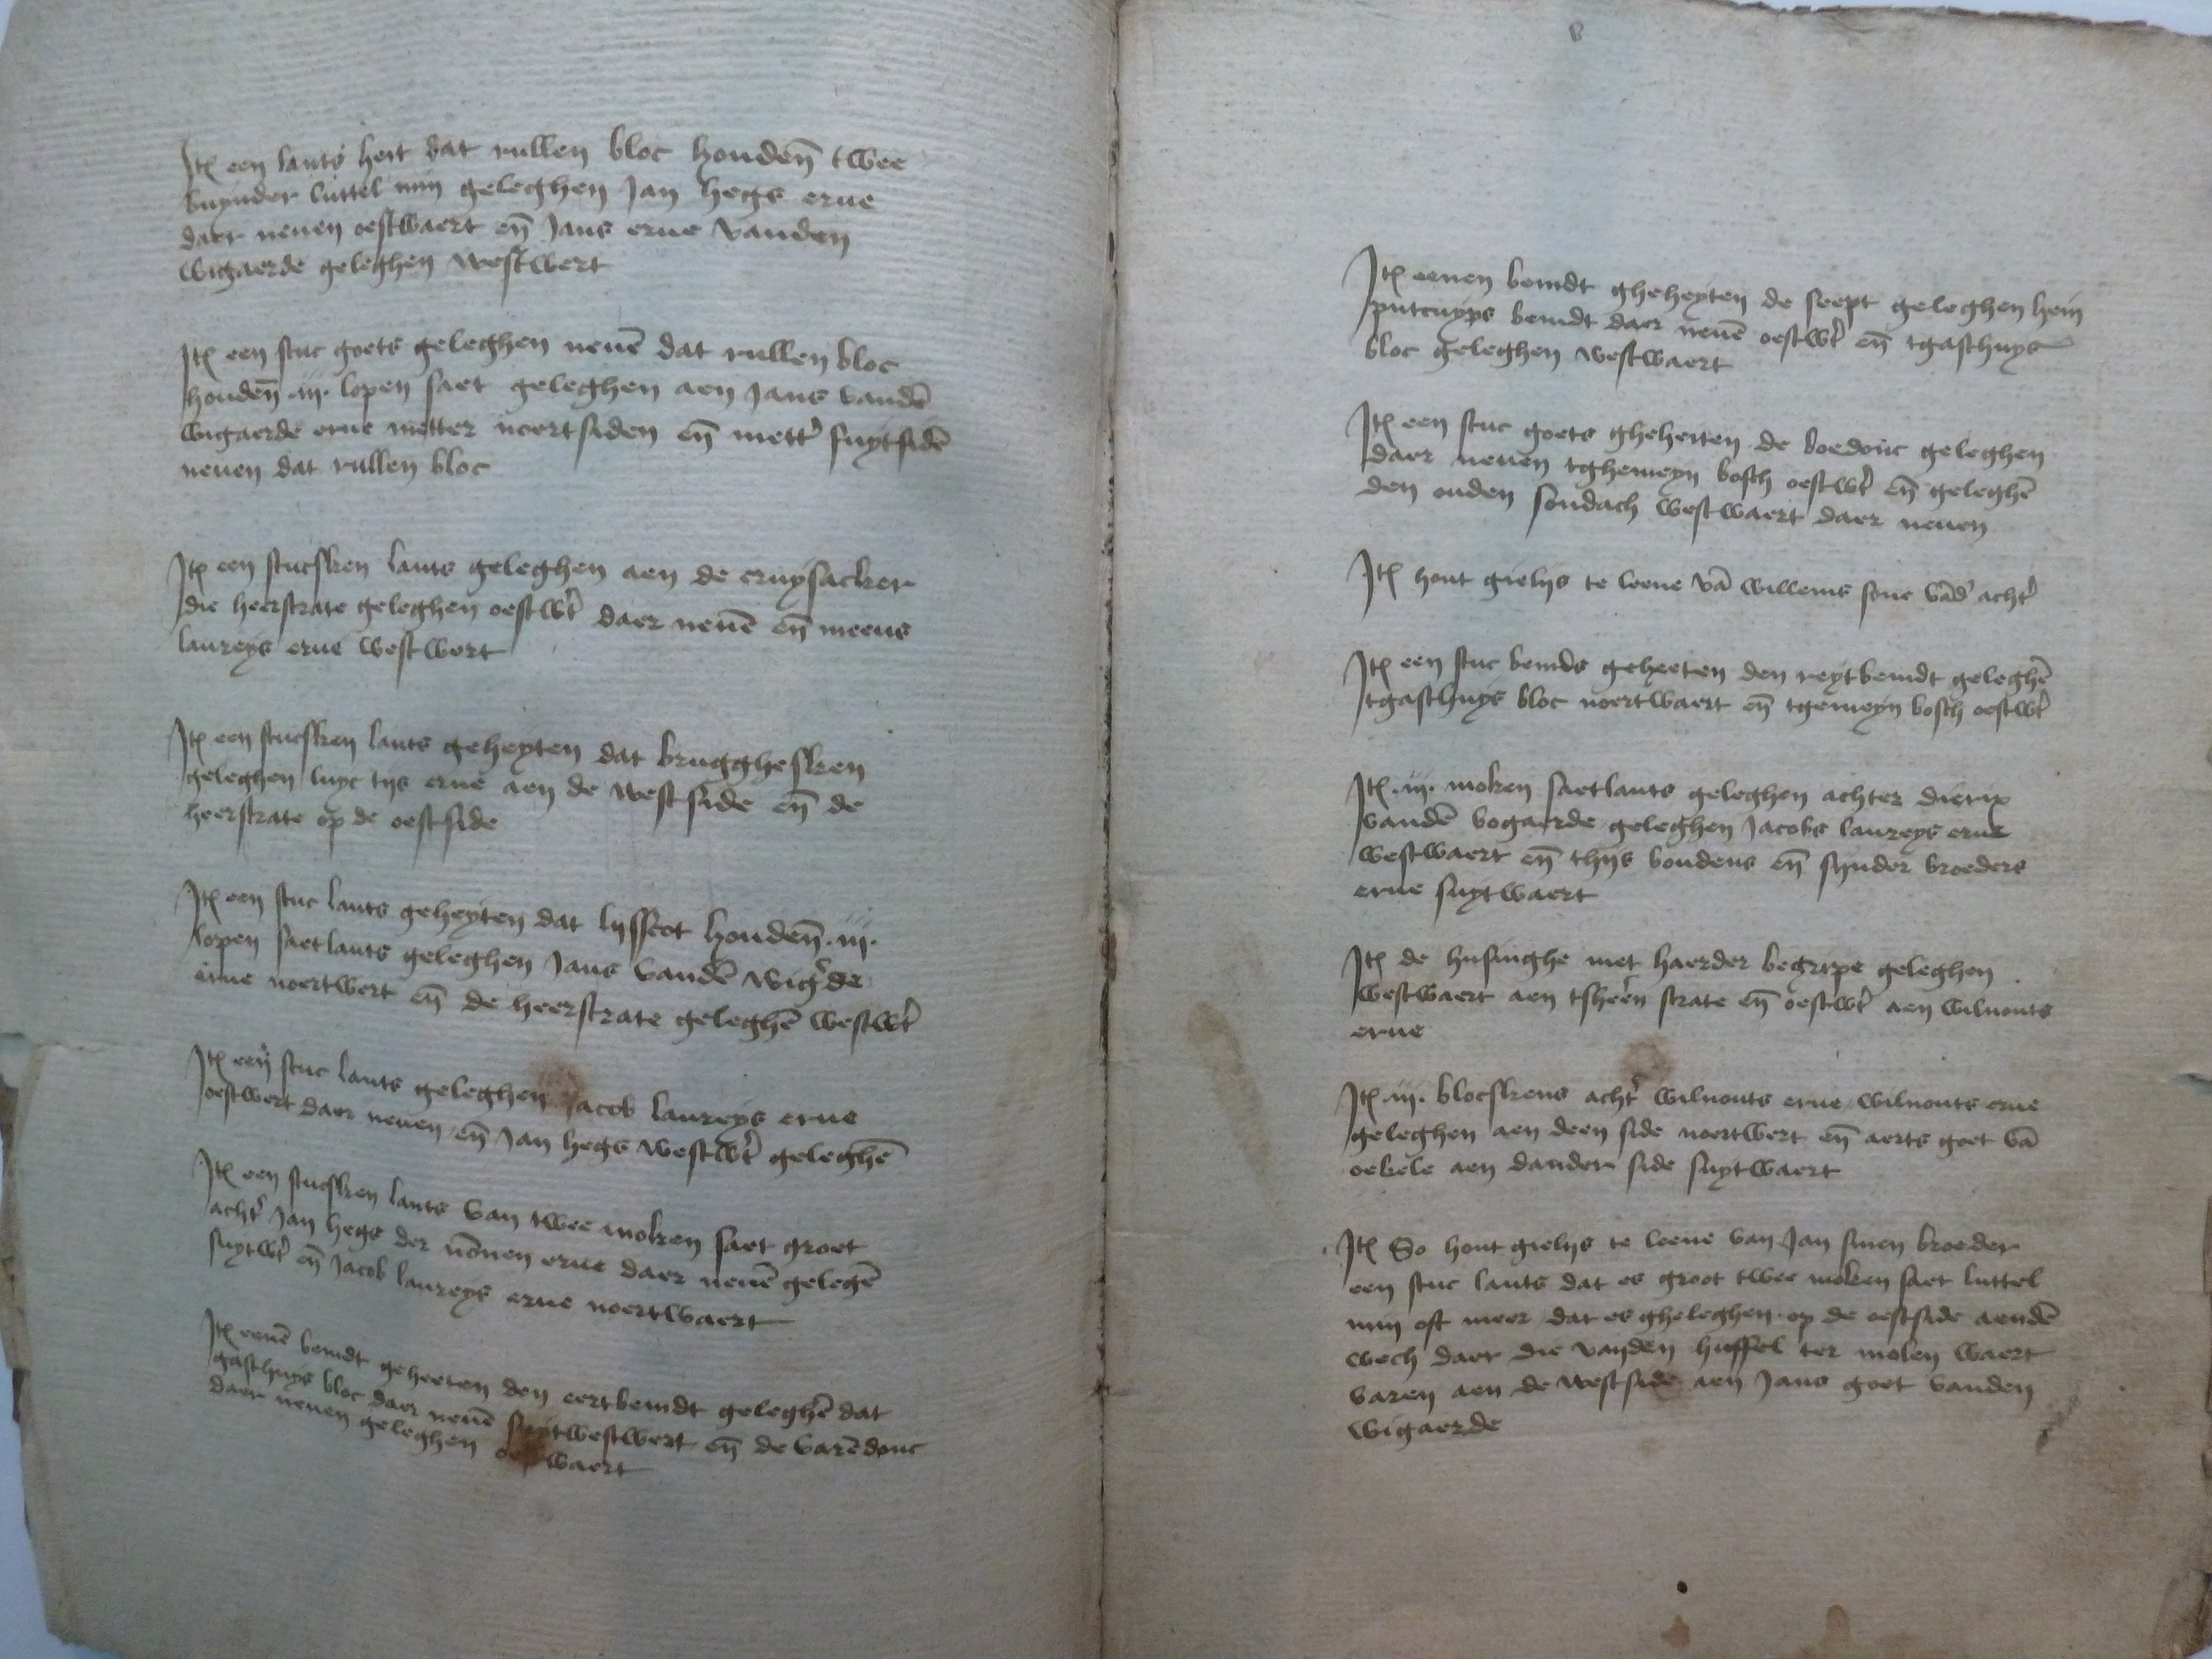 Itē een lants heit dat rullen bloc houdeñ twee
buynder luttel min geleghen Jan hegs erue
daer neuen oestwaert eñ Jans erue vanden
wigaerde geleghen westwert
Itē een stuc goets geleghen neuē dat rullen bloc
houdeñ .iij. lopen saet geleghen aen Jans vandē
wigaerde erue metter noertsiden eñ mett' suytsidē
neuen dat rullen bloc
Itē een stucsken lants geleghen aen de cruysacker
die heerstrate geleghen oestwt' daer neuē eñ meeus
laureys erue westwert
Itē een stucsken lants geheyten dat brugghesken
geleghen luyc tijs erue aen de westside eñ de
heerstrate op de oestside
Itē een stuc lants geheyten dat lijsscot houdeñ .iij.
lopen saetlants geleghen Jans vandē wig'de
erue noertwert eñ de heerstrate geleghē westwt'
Itē een stuc lants geleghen Jacob laureys erue
oestwert daer neuen eñ Jan hegs westwt' geleghē
Itē een stucsken lants van twee moken saet groet
acht' Jan hegs der nōnen erue daer neuē gelegē
suytwt' eñ Jacob laureys erue noertwaert
Itē eenē bemdt geheeten den eertbemdt geleghē dat
gasthuys bloc daer neuē suytwestwert eñ de varēdonc
daer neuen geleghen oestwaert
Itē eenen bemdt gheheyten de seept geleghen hein
putcuyps bemdt daer neuē oestwt' eñ tgasthuys
bloc geleghen westwaert
Itē een stuc goets gheheiten de boedonc geleghen
daer neuen tghemeyn bosch oestwt' eñ geleghē
den ouden sondach westwaert daer neuen
Itē hout gielijs te leene vā willems sone vād' acht'
Itē een stuc bemds geheeten den reytbemdt geleghē
tgasthuys bloc noertwaert eñ tgemeyn bosch oestwt'
Itē .iij. moken saetlants geleghen achter dierix
vandē bogaerde geleghen Jacobs laureys erue
westwaert eñ thijs boudens eñ sijnder broeders
erue suytwaert
Itē de husinghe met haerder begripe geleghen
westwaert aen tsheēn strate eñ oestwt' aen wilnouts
erue
Itē .iij. blocskens acht' wilnouts erue wilnouts erue
geleghen aen deen side noertwert eñ aerts goet vā
oekele aen dander side suytwaert
Itē So hout gielijs te leene van Jan sinen broeder
een stuc lants dat es groot twee moken saet luttel
min oft meer dat es gheleghen op de oestside aendē
wech daer die vanden huffel ter molen waert
varen aen de westside aen Jans goet vanden
wigaerde